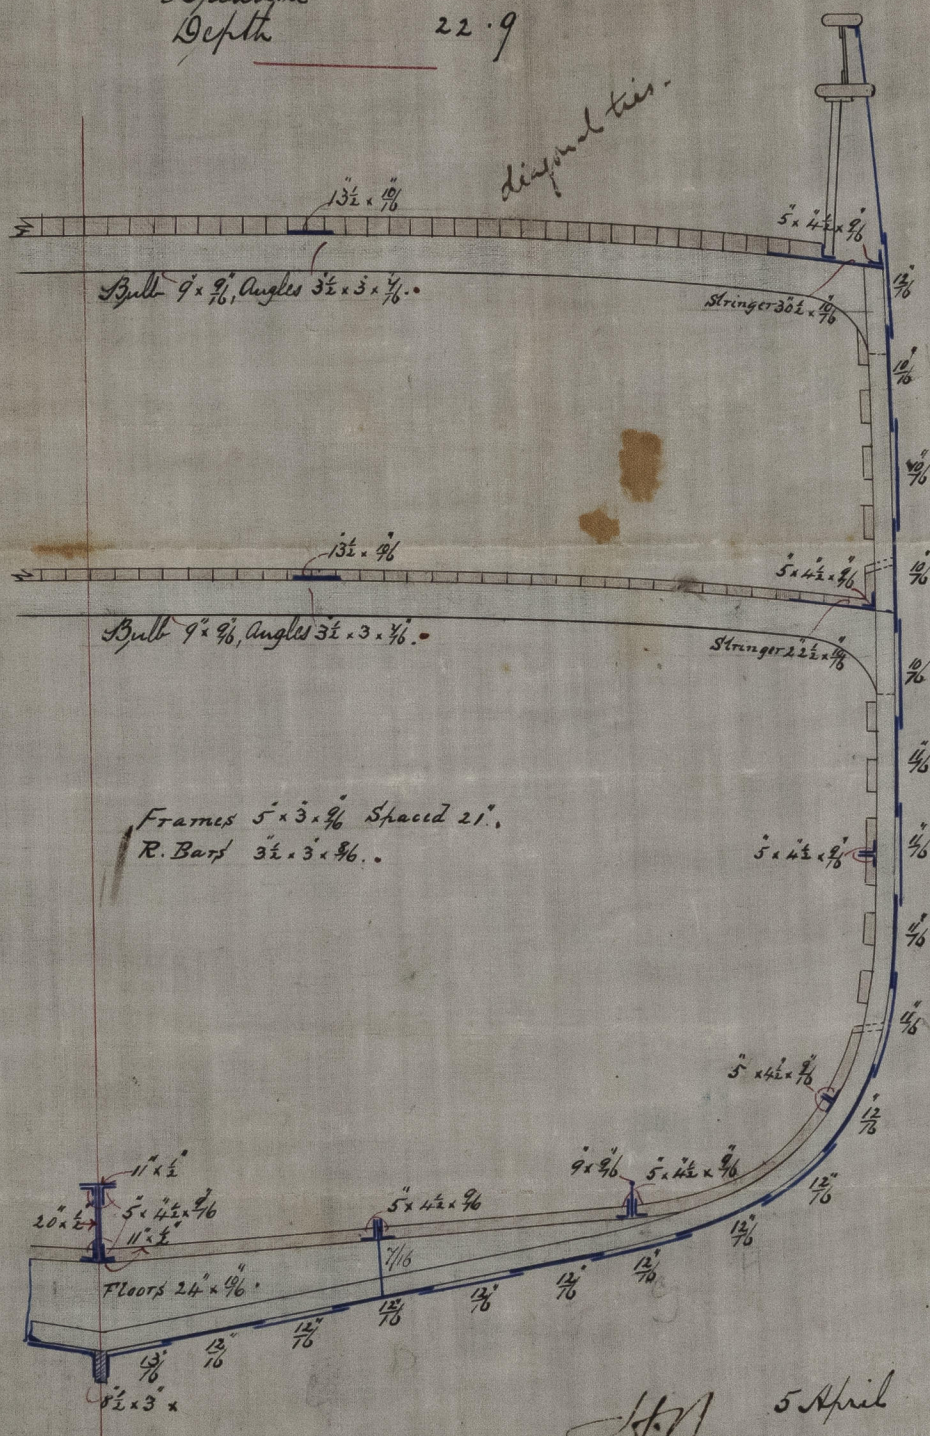 Depth 22.9
diagonal ties.
13½" × 10/16"
5" × 4½" × 9/16"
Bulb 9" × 9/16", Angles 3½" × 3" × 7/16".
Stringer 30½" × 10/16"
12/16"
10/16"
10/16"
13½" × 10/16"
5" × 4½" × 9/16"
10/16"
Bulb 9" × 9/16", Angles 3½" × 3 × 7/16".
Stringer 22½" × 10/16"
10/16"
11/16"
Frames 5" × 3" × 9/16" Spaced 21".
R. Bars 3½" × 3" × 8/16".
5" × 4½" × 9/16"
11/16"
11/16"
11/16"
5" × 4½" × 9/16"
12/16"
11" × ½"
9" × 9/16" 5" × 4½" × 9/16"
12/16"
20" × ½" 5" × 4½" × 9/16"
5" × 4½" × 9/16"
11" × ½"
7/16
12/16"
Floors 24" × 10/16".
12/16" 12/16" 12/16" 12/16" 12/16" 12/16" 13/16"
8½" × 3" ×
5 April